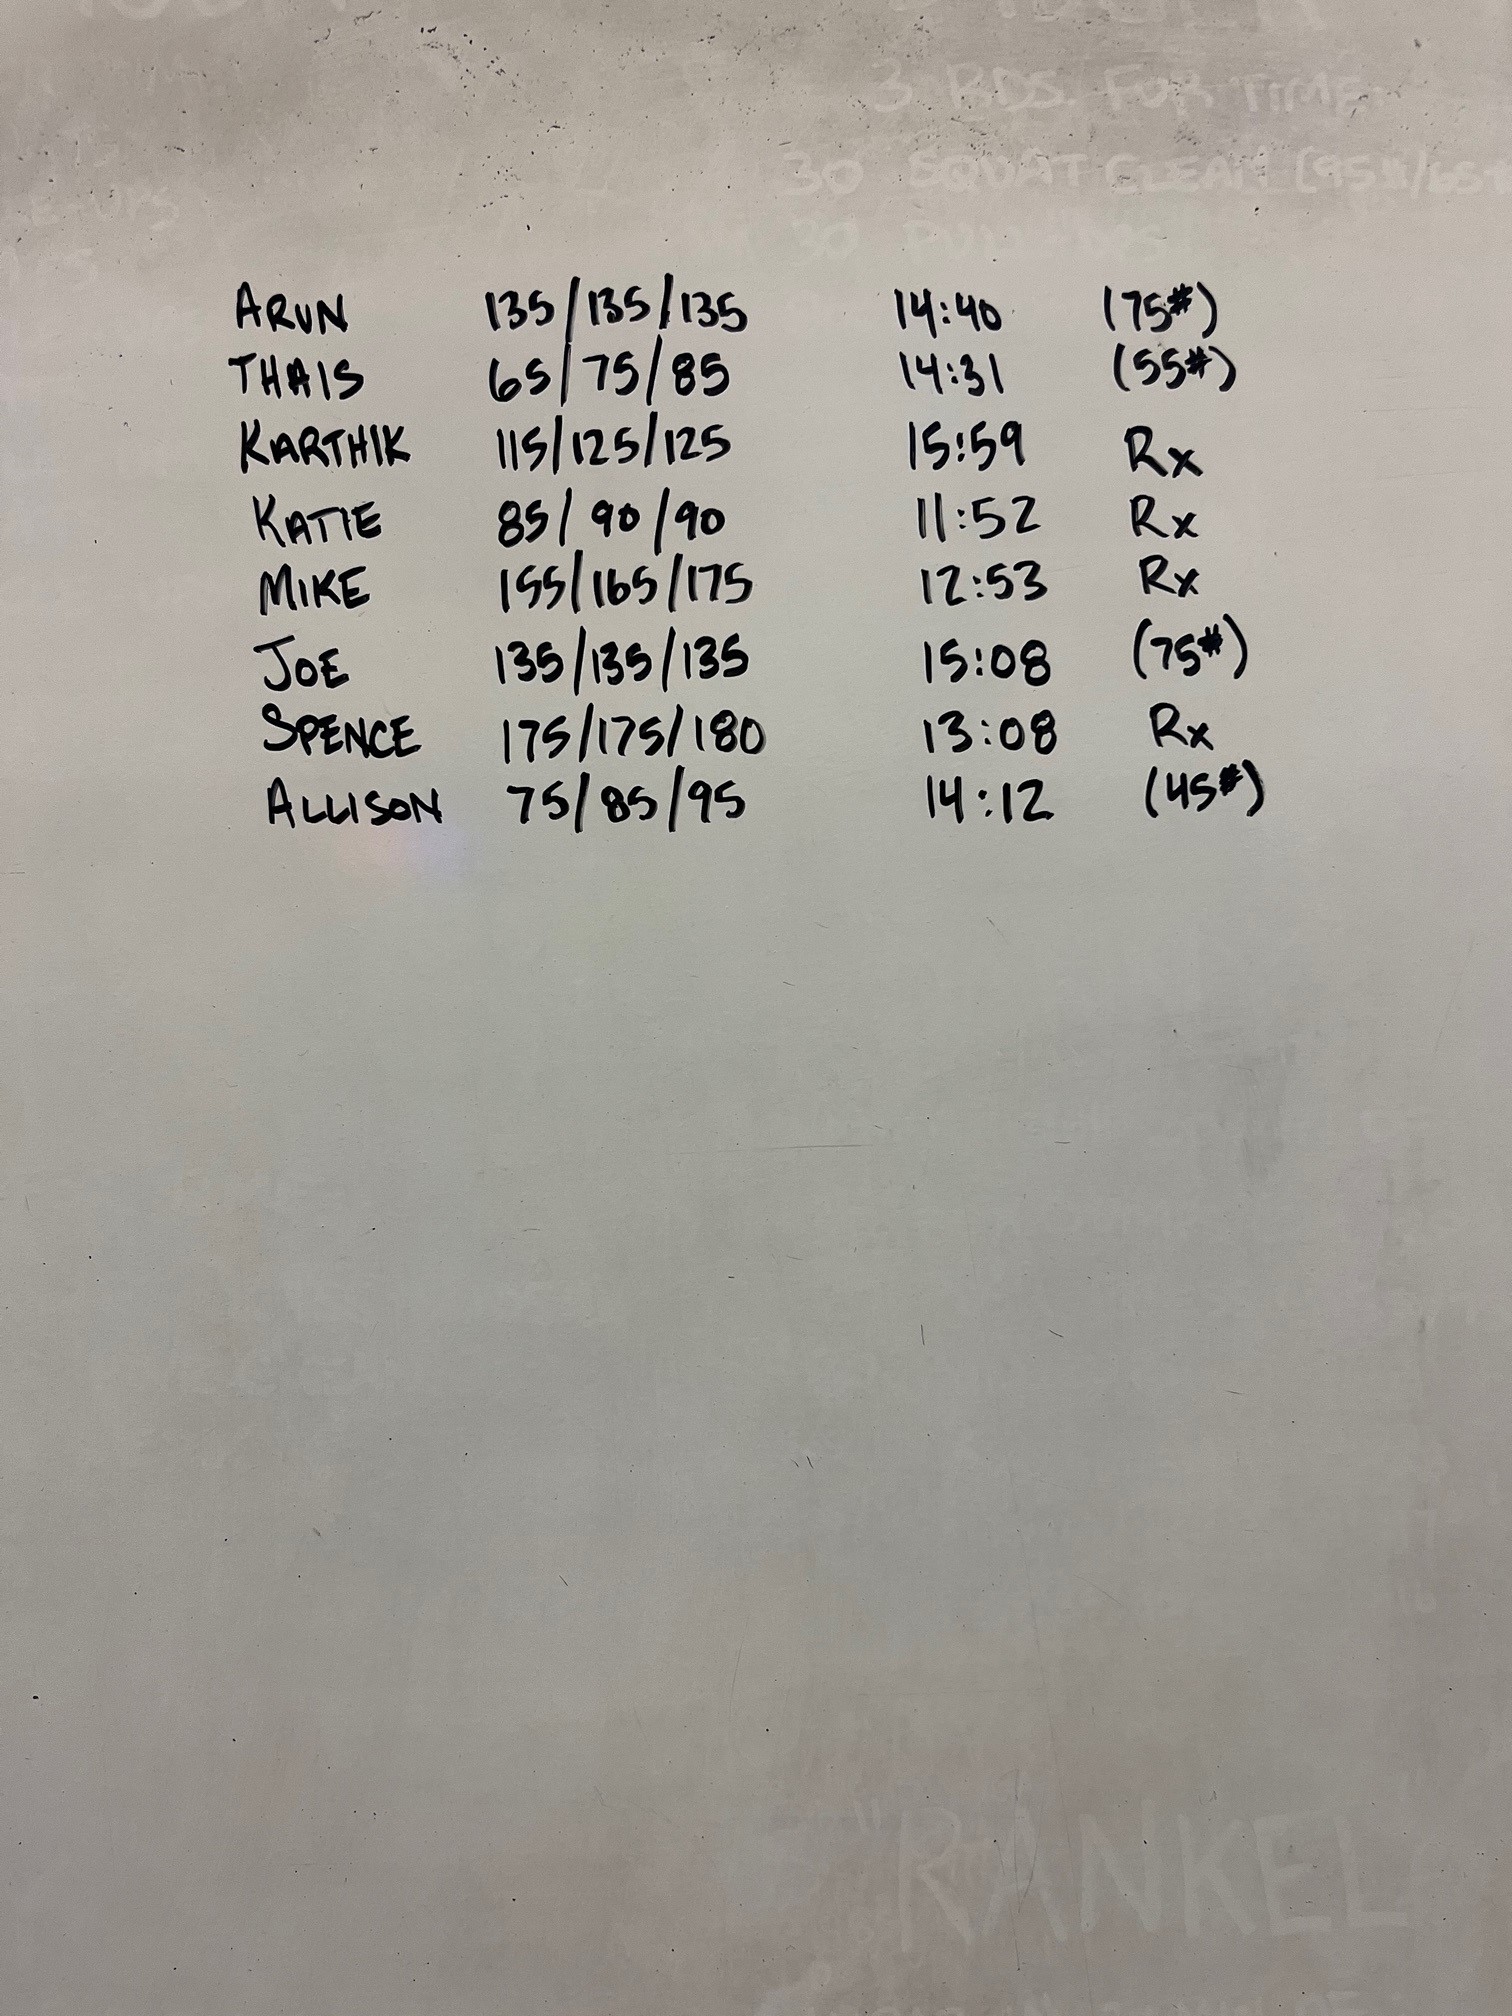 3 RDS. FOR TIME
30 SQUAT CLEAN (95#/65#
30
ARUN 135/135/135 14:40 (75#)
THAIS 65/75/85 14:31 (55#)
KARTHIK 115/125/125 15:59 Rx
KATIE 85/90/90 11:52 Rx
MIKE 155/165/175 12:53 Rx
JOE 135/135/135 15:08 (75#)
SPENCE 175/175/180 13:08 Rx
ALLISON 75/85/95 14:12 (45#)
"RANKEL